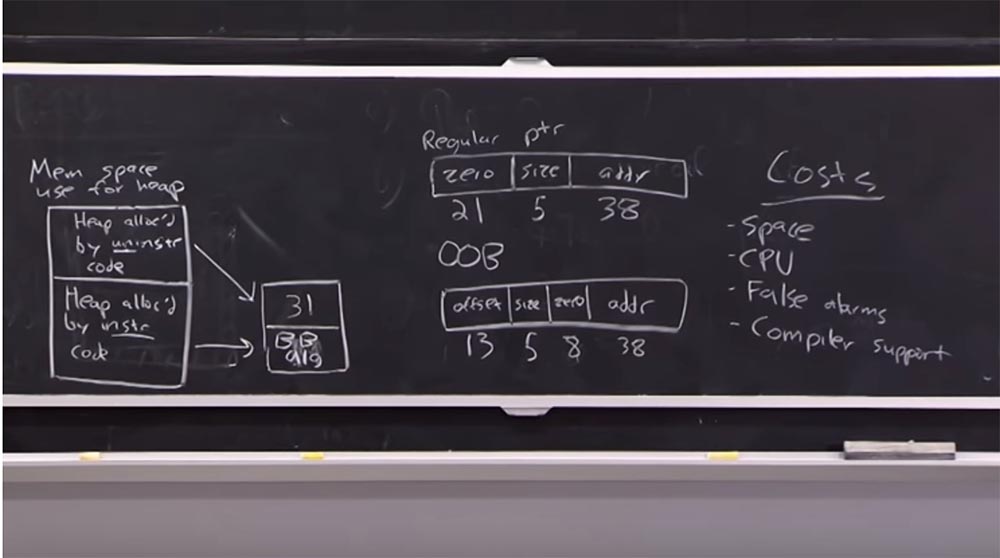 Mem space
use for heap
Heap alloc'd
by uninstr
code
Heap alloc'd
by instr
code
31
BB
alg
Regular ptr
zero size addr
21 5 38
OOB
offset size zero addr
13 5 8 38
Costs
- Space
- CPU
- False alarms
- Compiler support